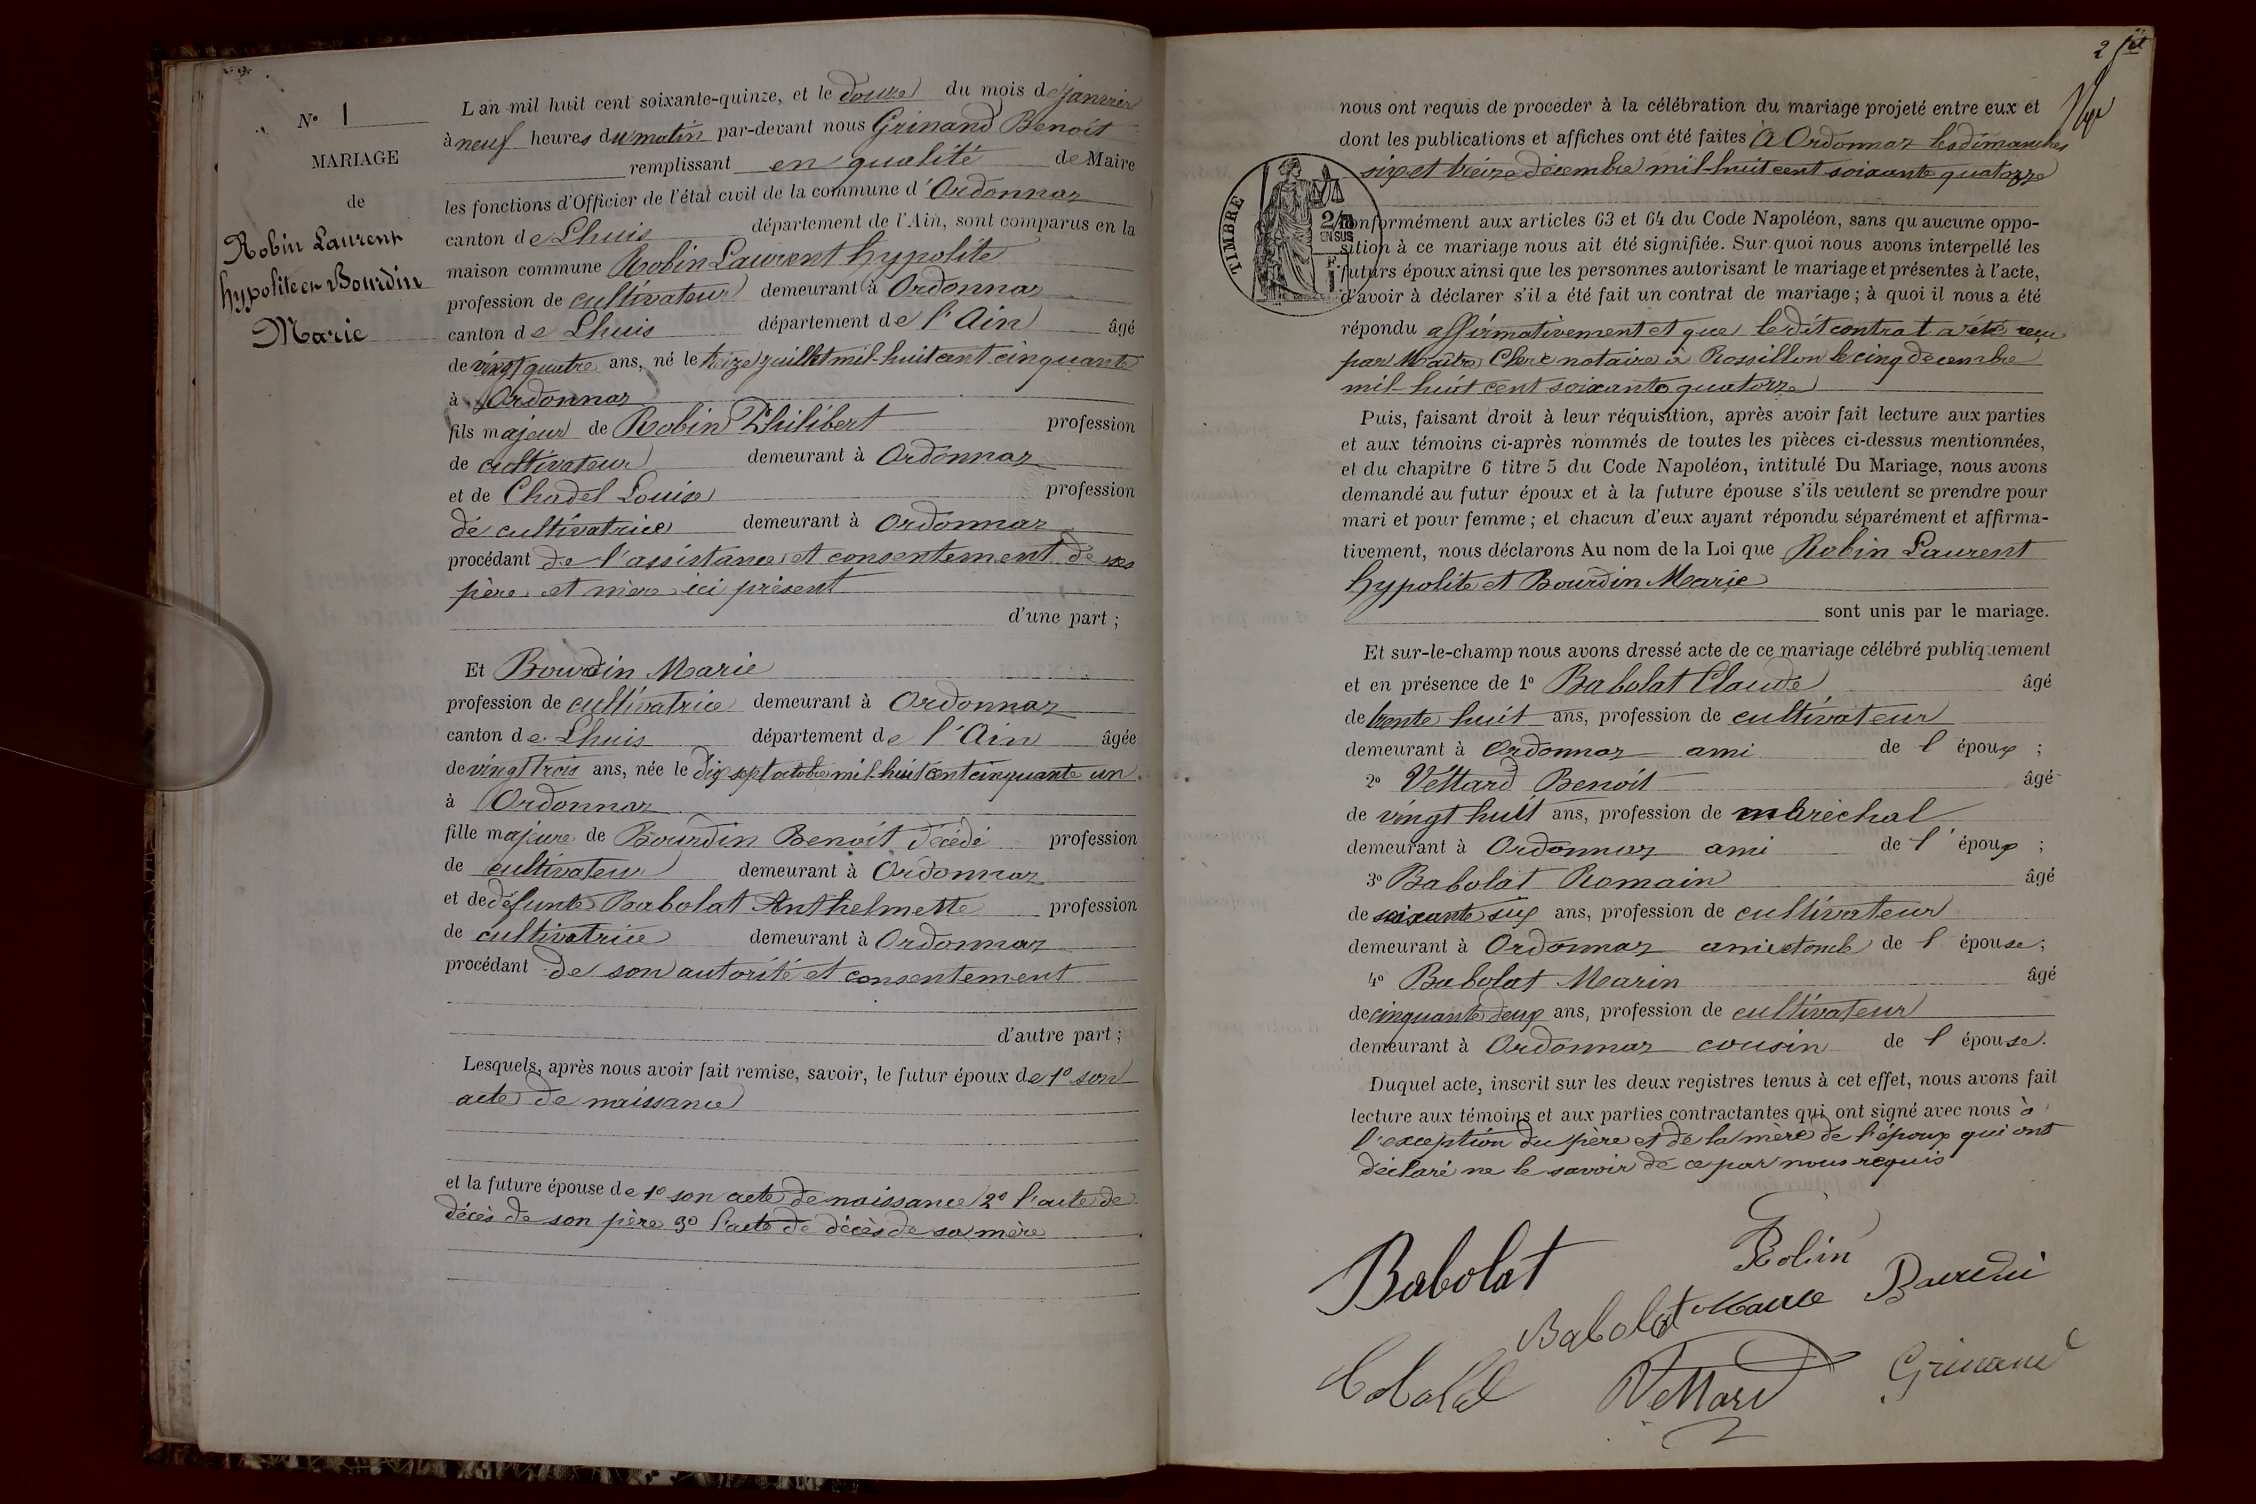 N° 1
MARIAGE
de
Robin Laurent
hypolite et Bourdin
Marie
L'an mil huit cent soixante-quinze, et le douze du mois de janvier
à neuf heures du matin par-devant nous Grinand Benoit
remplissant en qualité de Maire
les fonctions d'Officier de l'état civil de la commune d'Ordonnaz
canton de Lhuis département de l'Ain, sont comparus en la
maison commune Robin Laurent hypolite
profession de cultivateur demeurant à Ordonnaz
canton de Lhuis département de l'Ain âgé
de vingt quatre ans, né le treize juillet mil-huit cent cinquante
à Ordonnaz
fils majeur de Robin Philibert profession
de cultivateur demeurant à Ordonnaz
et de Chadel Louise profession
de cultivatrice demeurant à Ordonnaz
procédant de l'assistance et consentement de ses
père et mère ici présent
d'une part ;
Et Bourdin Marie
profession de cultivatrice demeurant à Ordonnaz
canton de Lhuis département de l'Ain âgée
de vingt trois ans, née le dix sept octobre mil-huit cent cinquante un
à Ordonnaz
fille majeure de Bourdin Benoit décédé profession
de cultivateur demeurant à Ordonnaz
et de défunte Babolat Anthelmette profession
de cultivatrice demeurant à Ordonnaz
procédant de son autorité et consentement
d'autre part ;
Lesquels, après nous avoir fait remise, savoir, le futur époux de 1° son
acte de naissance
et la future épouse de 1° son acte de naissance 2° l'acte de
décès de son père 3° l'acte de décès de sa mère
2
nous ont requis de procéder à la célébration du mariage projeté entre eux et
dont les publications et affiches ont été faites à Ordonnaz les dimanches
six et treize décembre mil-huit cent soixante quatorze
TIMBRE
2/10
EN SUS
conformément aux articles 63 et 64 du Code Napoléon, sans qu'aucune oppo-
sition à ce mariage nous ait été signifiée. Sur quoi nous avons interpellé les
futurs époux ainsi que les personnes autorisant le mariage et présentes à l'acte,
d'avoir à déclarer s'il a été fait un contrat de mariage ; à quoi il nous a été
répondu affirmativement et que le dit contrat a été reçu
par Maître Clerc notaire à Rossillon le cinq décembre
mil-huit cent soixante quatorze
Puis, faisant droit à leur réquisition, après avoir fait lecture aux parties
et aux témoins ci-après nommés de toutes les pièces ci-dessus mentionnées,
et du chapitre 6 titre 5 du Code Napoléon, intitulé Du Mariage, nous avons
demandé au futur époux et à la future épouse s'ils veulent se prendre pour
mari et pour femme ; et chacun d'eux ayant répondu séparément et affirma-
tivement, nous déclarons Au nom de la Loi que Robin Laurent
hypolite et Bourdin Marie
sont unis par le mariage.
Et sur-le-champ nous avons dressé acte de ce mariage célébré publiquement
et en présence de 1° Babolat Claude âgé
de trente huit ans, profession de cultivateur
demeurant à Ordonnaz ami de l'époux ;
2° Vettard Benoit âgé
de vingt huit ans, profession de maréchal
demeurant à Ordonnaz ami de l'époux ;
3° Babolat Romain âgé
de soixante six ans, profession de cultivateur
demeurant à Ordonnaz de l'épouse ;
4° Babolat Marin âgé
de cinquante deux ans, profession de cultivateur
demeurant à Ordonnaz cousin de l'épouse.
Duquel acte, inscrit sur les deux registres tenus à cet effet, nous avons fait
lecture aux témoins et aux parties contractantes qui ont signé avec nous à
l'exception du père et de la mère de l'époux qui ont
déclaré ne le savoir de ce par nous requis
Babolat
Robin
Babolat
Bourdin
Vettard
Grinand